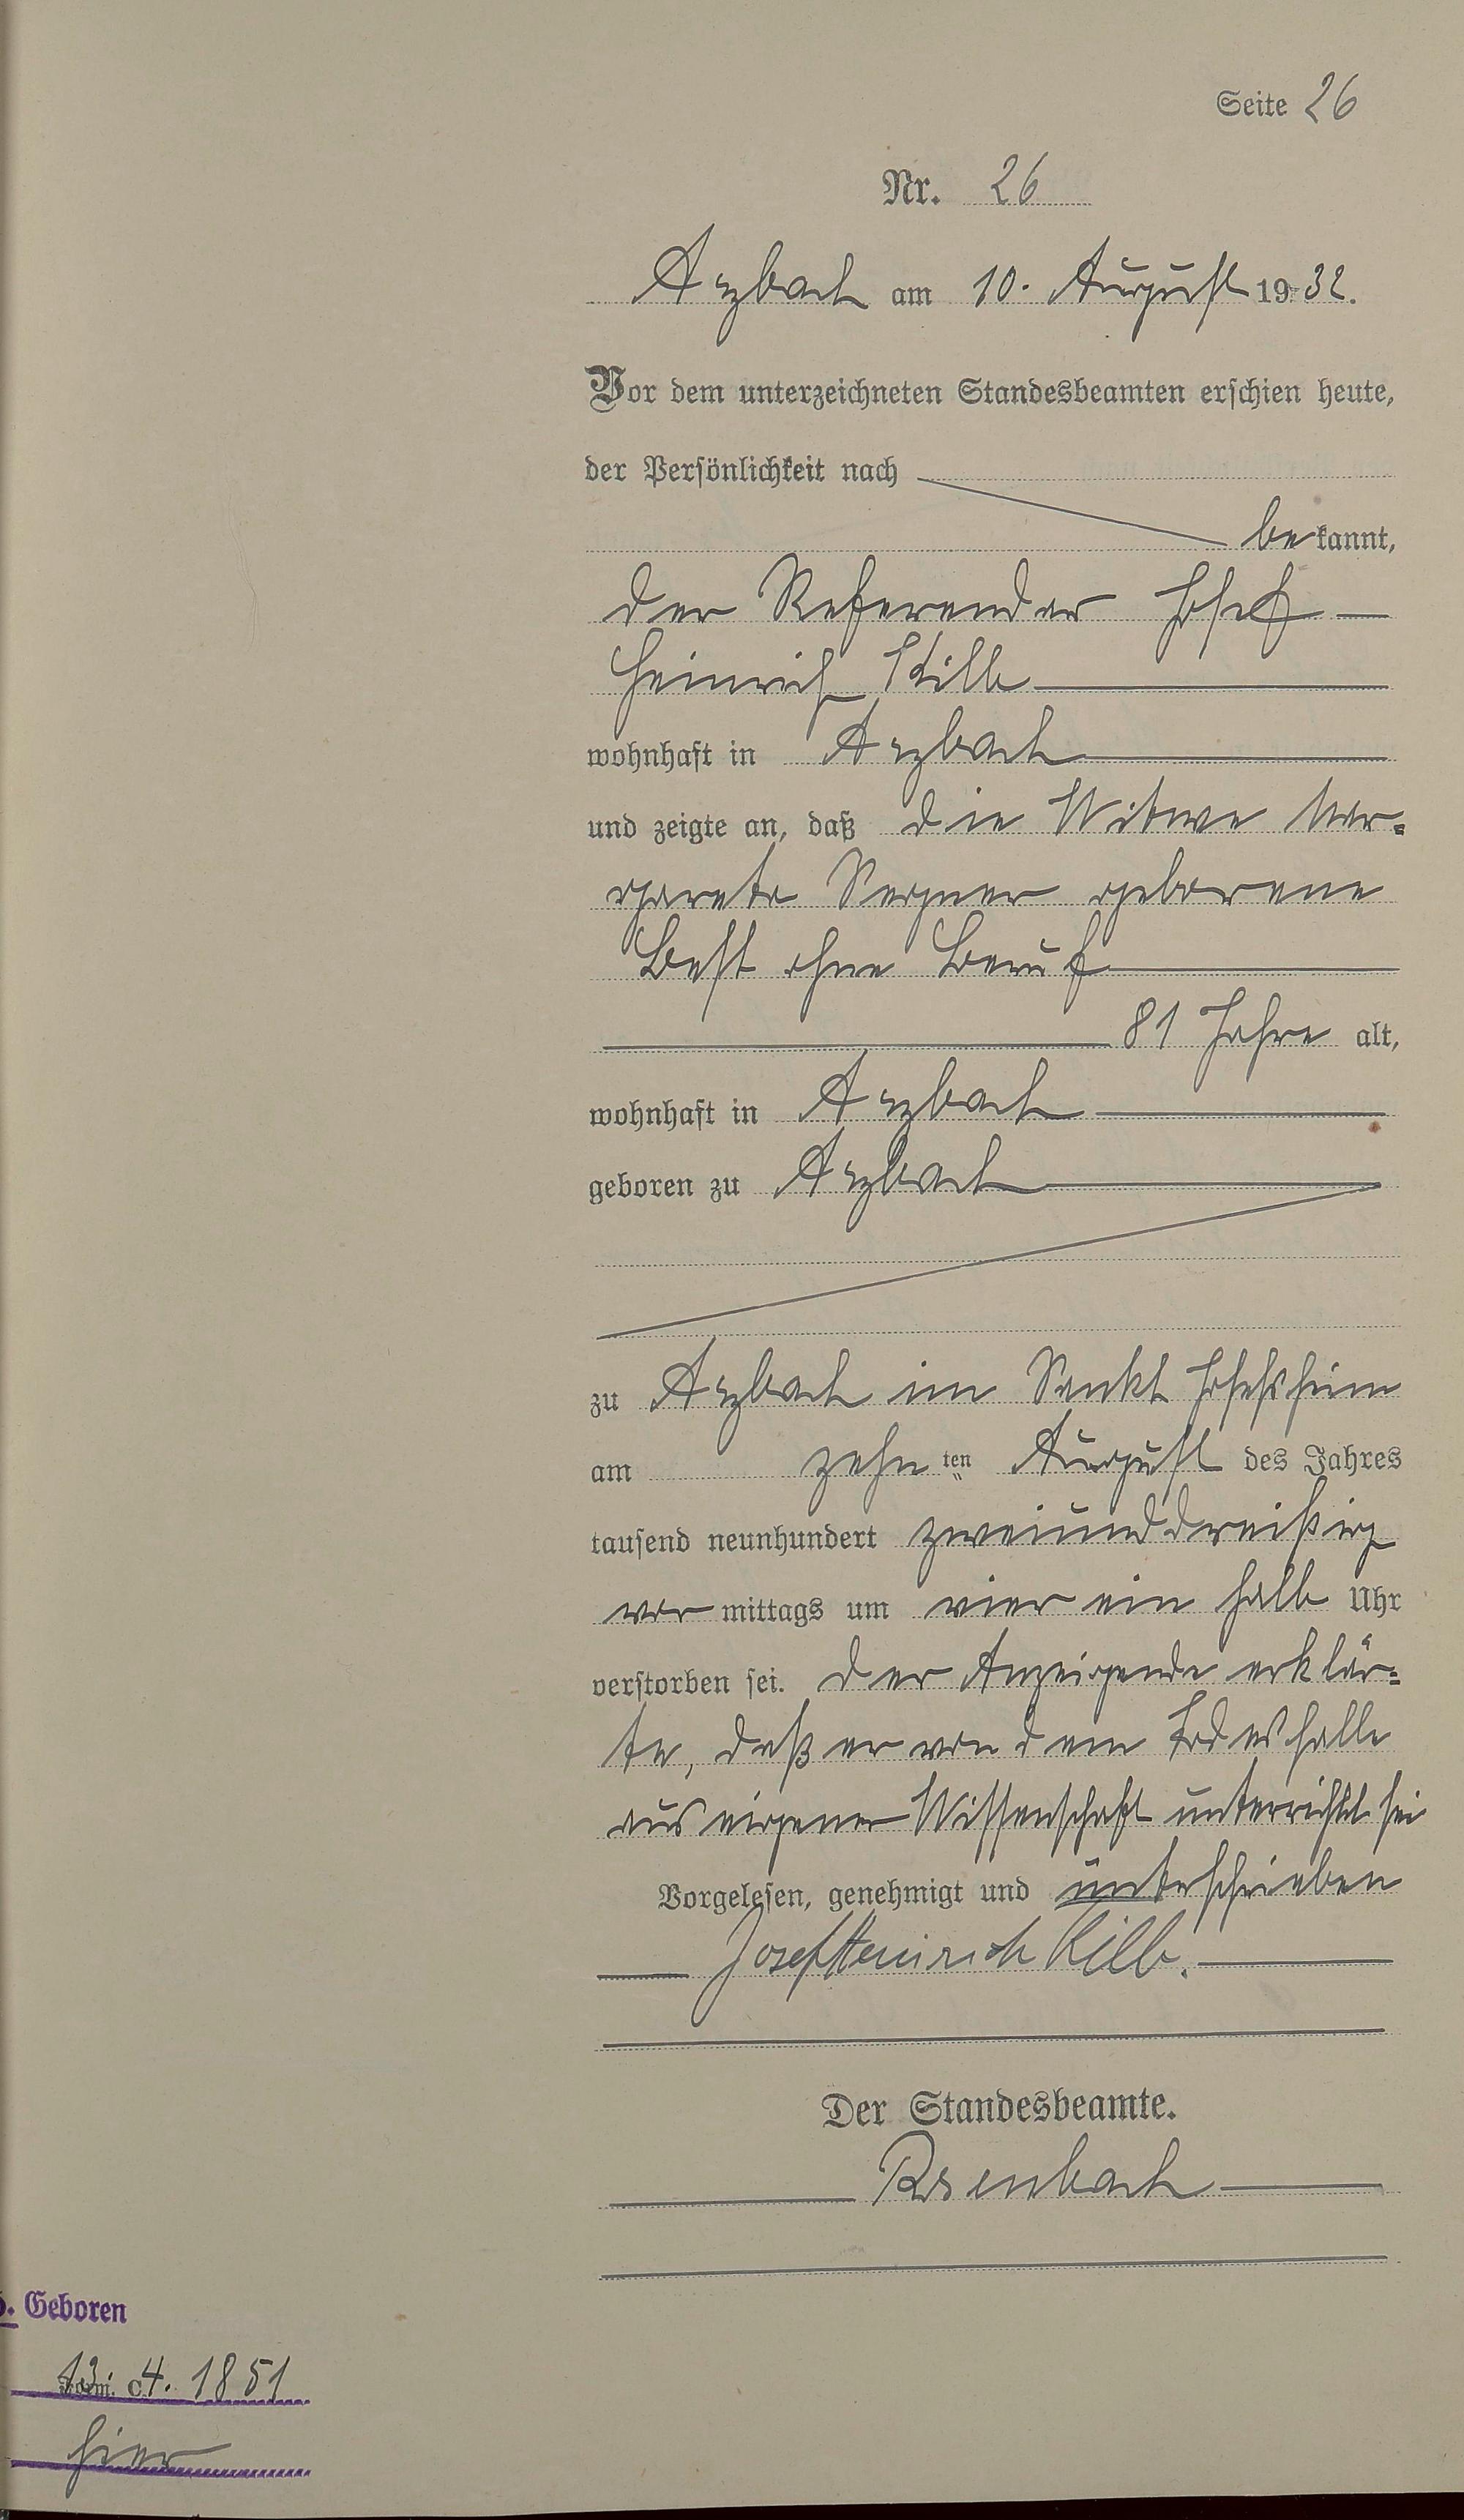 Seite 26
Nr. 26
Arzbach am 10. August 1932.
Vor dem unterzeichneten Standesbeamten erschien heute,
der Persönlichkeit nach
bekannt,
der Referendar Josef
Heinrich Kilb
wohnhaft in Arzbach
und zeigte an, daß die Witwe Mar-
gareta Segner geborene
Best ohne Beruf
81 Jahre alt,
wohnhaft in Arzbach
geboren zu Arzbach
zu Arzbach im Sankt Josefsheim
am zehnten August des Jahres
tausend neunhundert zweiunddreißig
vormittags um vier ein halb Uhr
verstorben sei. Der Anzeigende erklär-
te, daß er von dem Todesfalle
aus eigener Wissenschaft unterrichtet sei
Vorgelesen, genehmigt und unterschrieben
Josef Heinrich Kilb.
Der Standesbeamte.
Rosenbach
Geboren
13. 4. 1851
hier